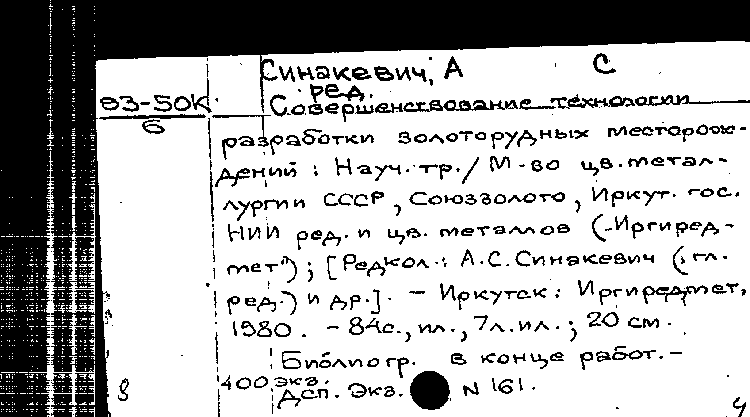 Синакевич, А С
ред.
83-50К Совершенствование технологии
6
разработки золоторудных месторож-
дений : Науч. тр. / М-во цв. метал-
лургии СССР, Союззолото, Иркут. гос.
НИИ ред. и цв. металлов ("Иргиред-
мет") ; [Редкол.: А.С. Синакевич (гл.
ред.) и др.]. - Иркутск : Иргиредмет,
1980. - 84с., ил., 7л.ил. ; 20 см.
Библиогр. в конце работ. -
400 экз.
Дсп. Экз. N 161.